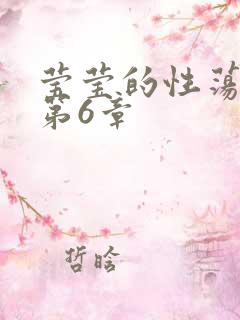 莹莹的性荡
第6章
哲晗